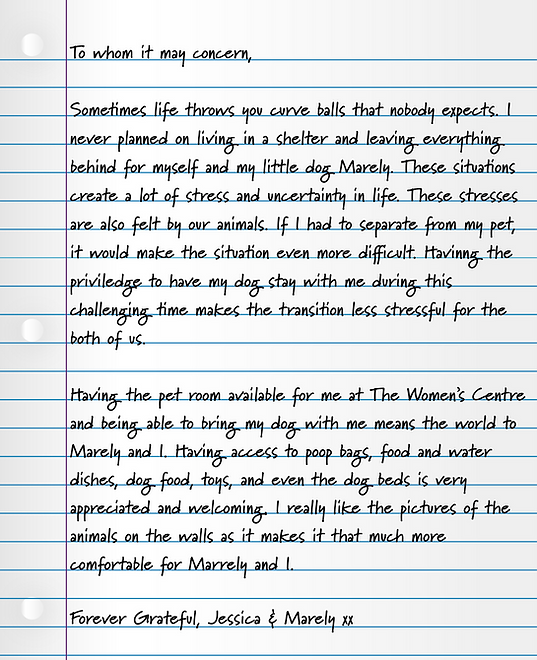 To whom it may concern,
Sometimes life throws you curve balls that nobody expects. I
never planned on living in a shelter and leaving everything
behind for myself and my little dog Marely. These situations
create a lot of stress and uncertainty in life. These stresses
are also felt by our animals. If I had to separate from my pet,
it would make the situation even more difficult. Havinng the
priviledge to have my dog stay with me during this
challenging time makes the transition less stressful for the
both of us.
Having the pet room available for me at The Women's Centre
and being able to bring my dog with me means the world to
Marely and I. Having access to poop bags, food and water
dishes, dog food, toys, and even the dog beds is very
appreciated and welcoming. I really like the pictures of the
animals on the walls as it makes it that much more
comfortable for Marrely and I.
Forever Grateful, Jessica & Marely xx